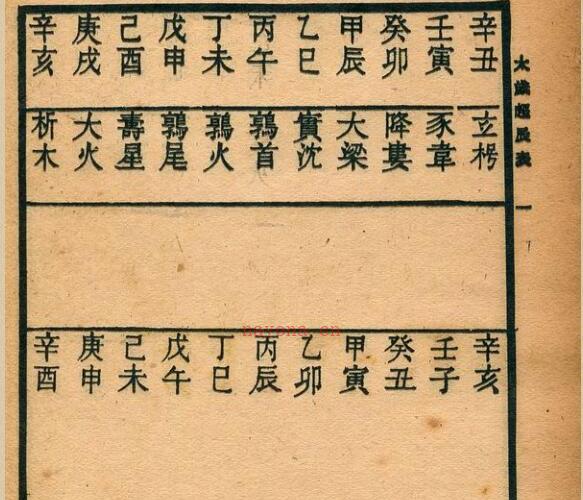 太歲超辰表
一
辛丑
壬寅
癸卯
甲辰
乙巳
丙午
丁未
戊申
己酉
庚戌
辛亥
玄枵
豕韋
降婁
大梁
實沈
鶉首
鶉火
鶉尾
壽星
大火
析木
辛亥
壬子
癸丑
甲寅
乙卯
丙辰
丁巳
戊午
己未
庚申
辛酉
nayona.cn